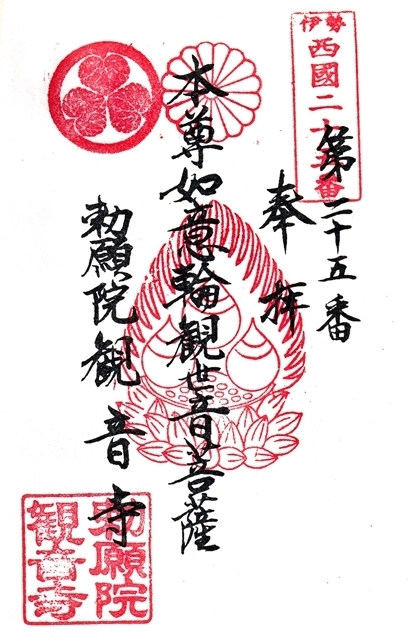 伊勢
西國二十五番
第二十五番
奉拝
本尊如意輪観世音菩薩
勅願院観音寺
勅願院
観音寺